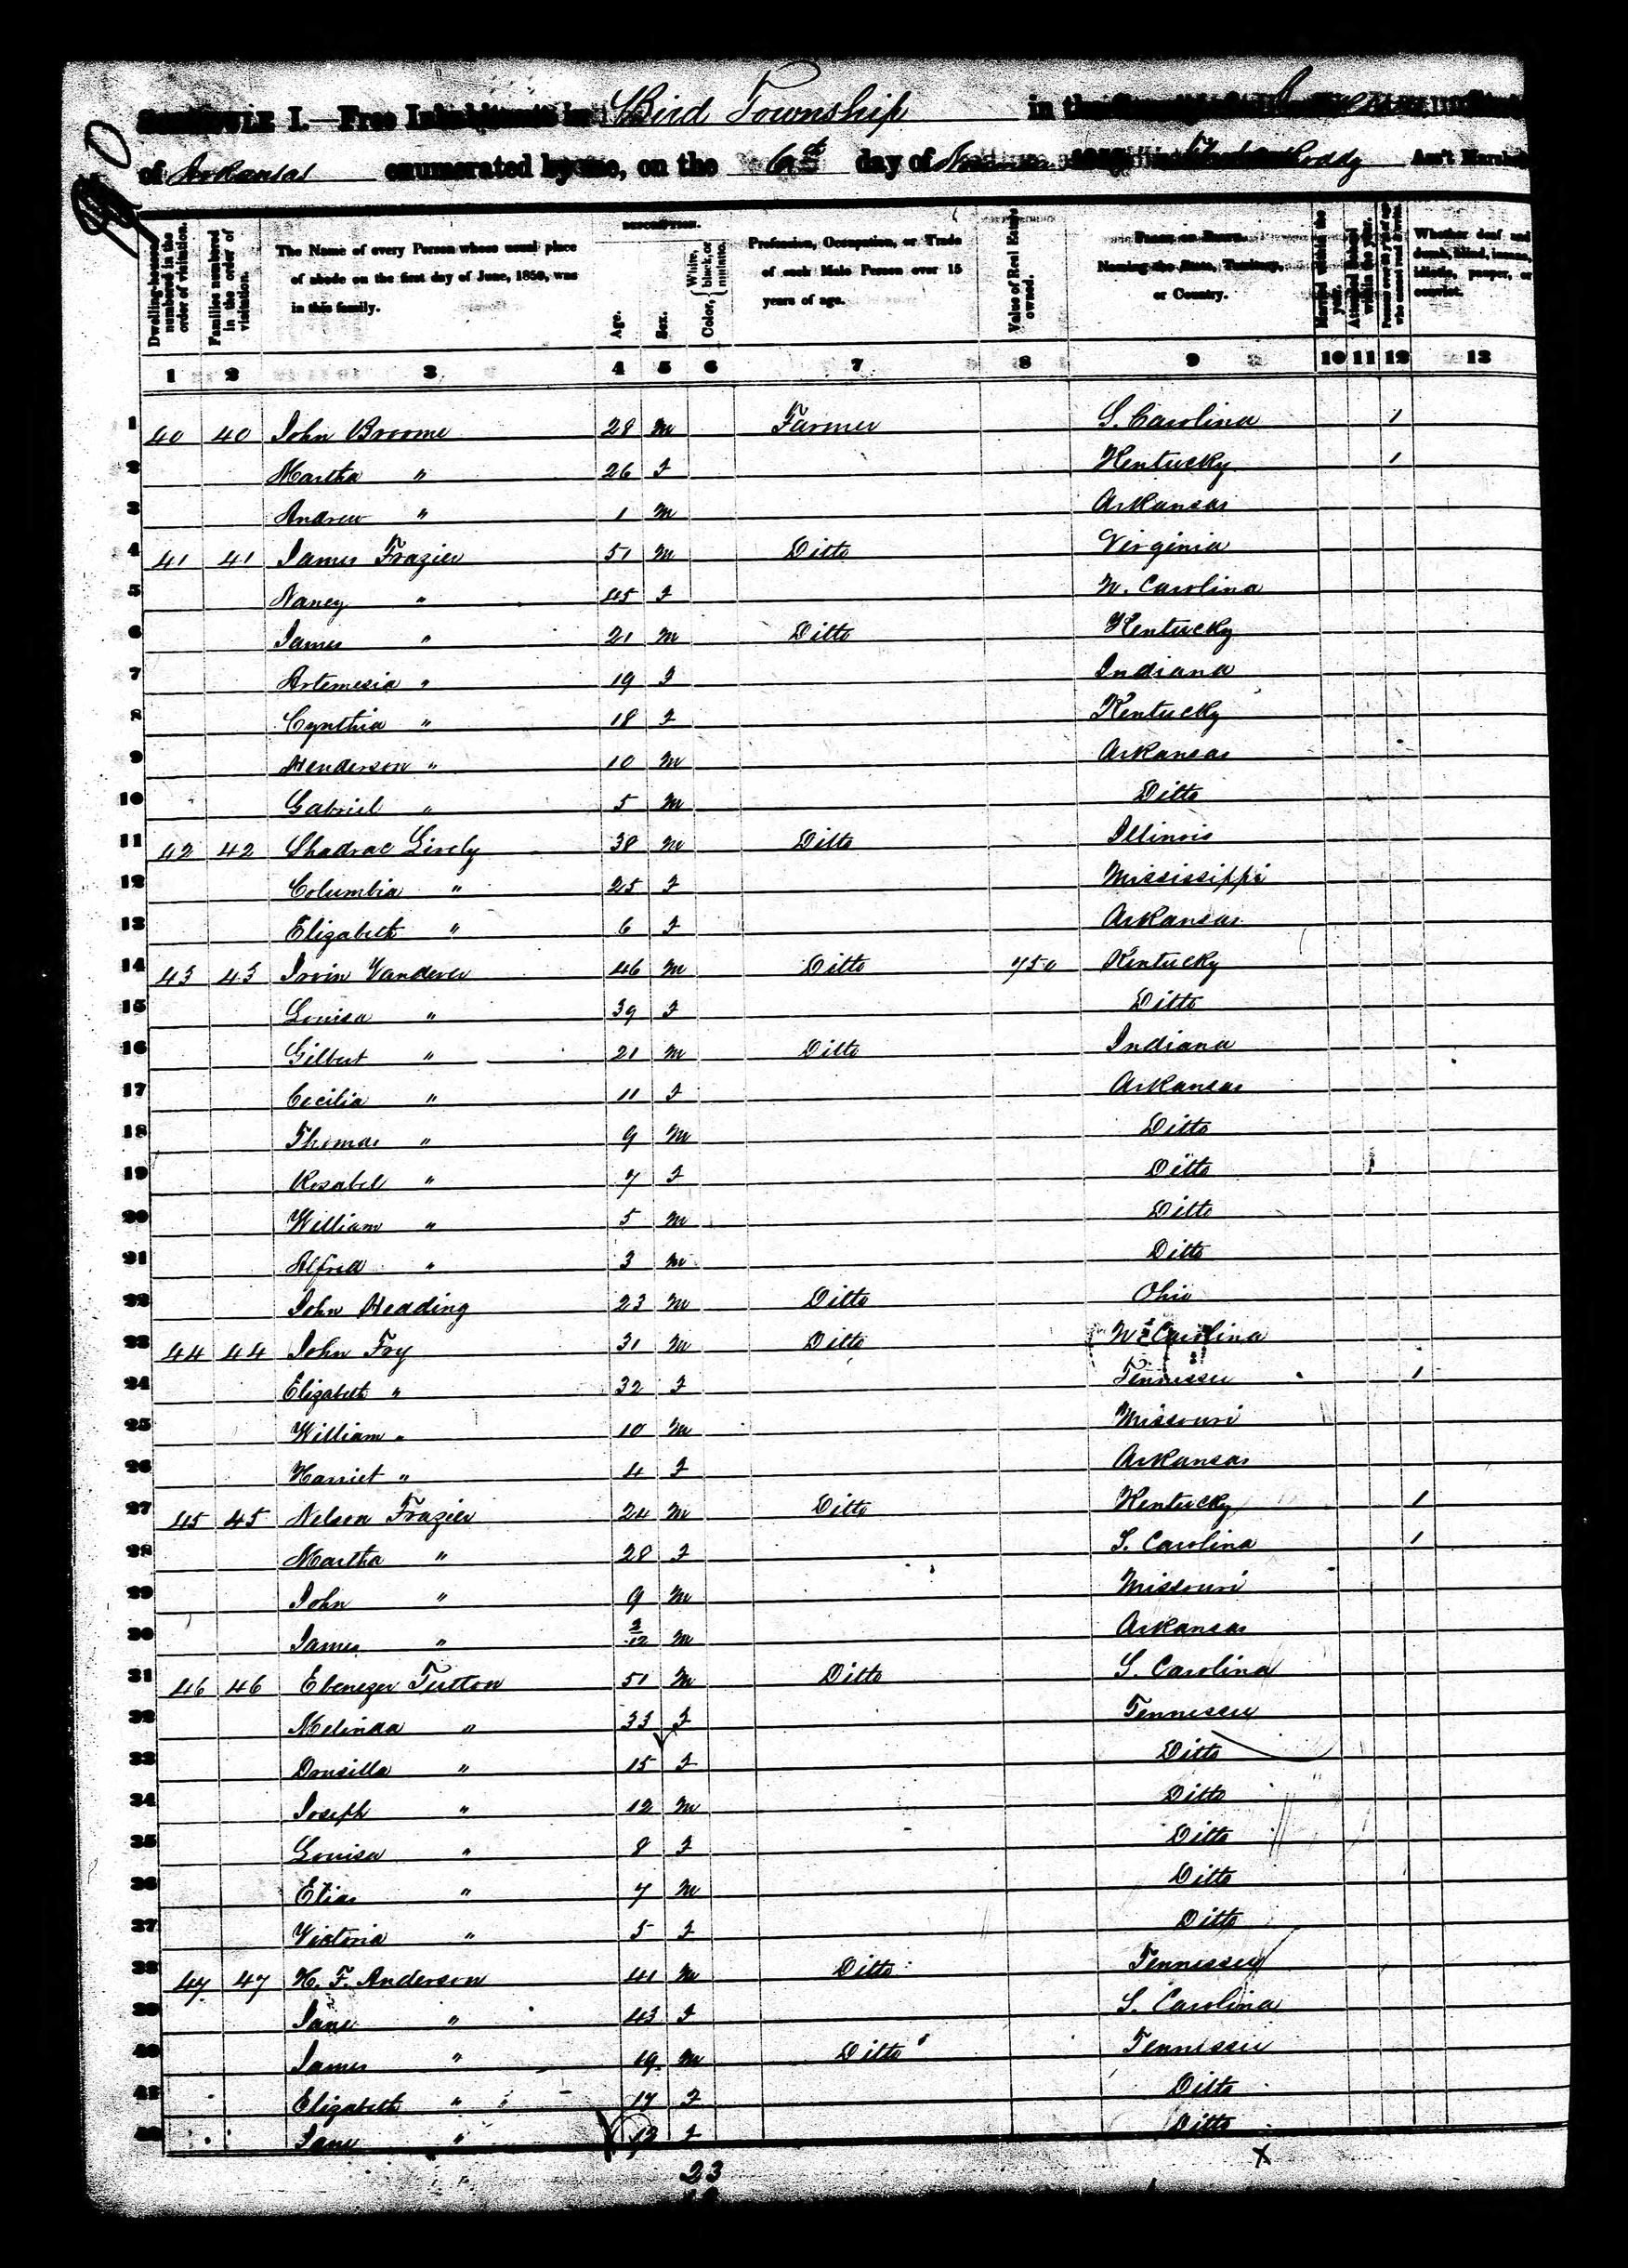 SCHEDULE I.—Free Inhabitants in Bird Township in the County of State
of Arkansas enumerated by me, on the 6th day of 1850. Roddy Ass't Marshal
Dwelling-houses numbered in the order of visitation.
Families numbered in the order of visitation.
The Name of every Person whose usual place of abode on the first day of June, 1850, was in this family.
DESCRIPTION.
Age.
Sex.
Color, { White, black, or mulatto.
Profession, Occupation, or Trade of each Male Person over 15 years of age.
Value of Real Estate owned.
PLACE OF BIRTH. Naming the State, Territory, or Country.
Married within the year.
Attended School within the year.
Persons over 20 y'rs of age who cannot read & write.
Whether deaf and dumb, blind, insane, idiotic, pauper, or convict.
1 2 3 4 5 6 7 8 9 10 11 12 13
1 40 40 John Broome 28 m Farmer S. Carolina 1
2 Martha " 26 F Kentucky 1
3 Andrew " 1 m Arkansas
4 41 41 James Frazier 51 m Ditto Virginia
5 Nancy " 45 F N. Carolina
6 James " 21 m Ditto Kentucky
7 Artemesia " 19 F Indiana
8 Cynthia " 18 F Kentucky
9 Henderson " 10 m Arkansas
10 Gabriel " 5 m Ditto
11 42 42 Shadrac Lively 38 m Ditto Illinois
12 Columbia " 25 F Mississippi
13 Elizabeth " 6 F Arkansas
14 43 43 Irvin Vandever 46 m Ditto 750 Kentucky
15 Louisa " 39 F Ditto
16 Gilbert " 21 m Ditto Indiana
17 Cecilia " 11 F Arkansas
18 Thomas " 9 m Ditto
19 Rosabel " 7 F Ditto
20 William " 5 m Ditto
21 Alfred " 3 m Ditto
22 John Hedding 23 m Ditto Ohio
23 44 44 John Fry 31 m Ditto N. Carolina
24 Elizabeth " 32 F Tennessee 1
25 William " 10 m Missouri
26 Harriet " 4 F Arkansas
27 45 45 Nelson Frazier 24 m Ditto Kentucky 1
28 Martha " 28 F S. Carolina 1
29 John " 9 m Missouri
30 James " 3/12 m Arkansas
31 46 46 Ebenezer Tutton 51 m Ditto S. Carolina
32 Melinda " 33 F Tennessee
33 Drusilla " 15 F Ditto
34 Joseph " 12 m Ditto
35 Louisa " 8 F Ditto
36 Elias " 7 m Ditto
37 Victoria " 5 F Ditto
38 47 47 H. F. Anderson 41 m Ditto Tennessee
39 Jane " 43 F S. Carolina
40 James " 19 m Ditto Tennessee
41 Elizabeth " 17 F Ditto
42 Jane " 12 F Ditto
23 X